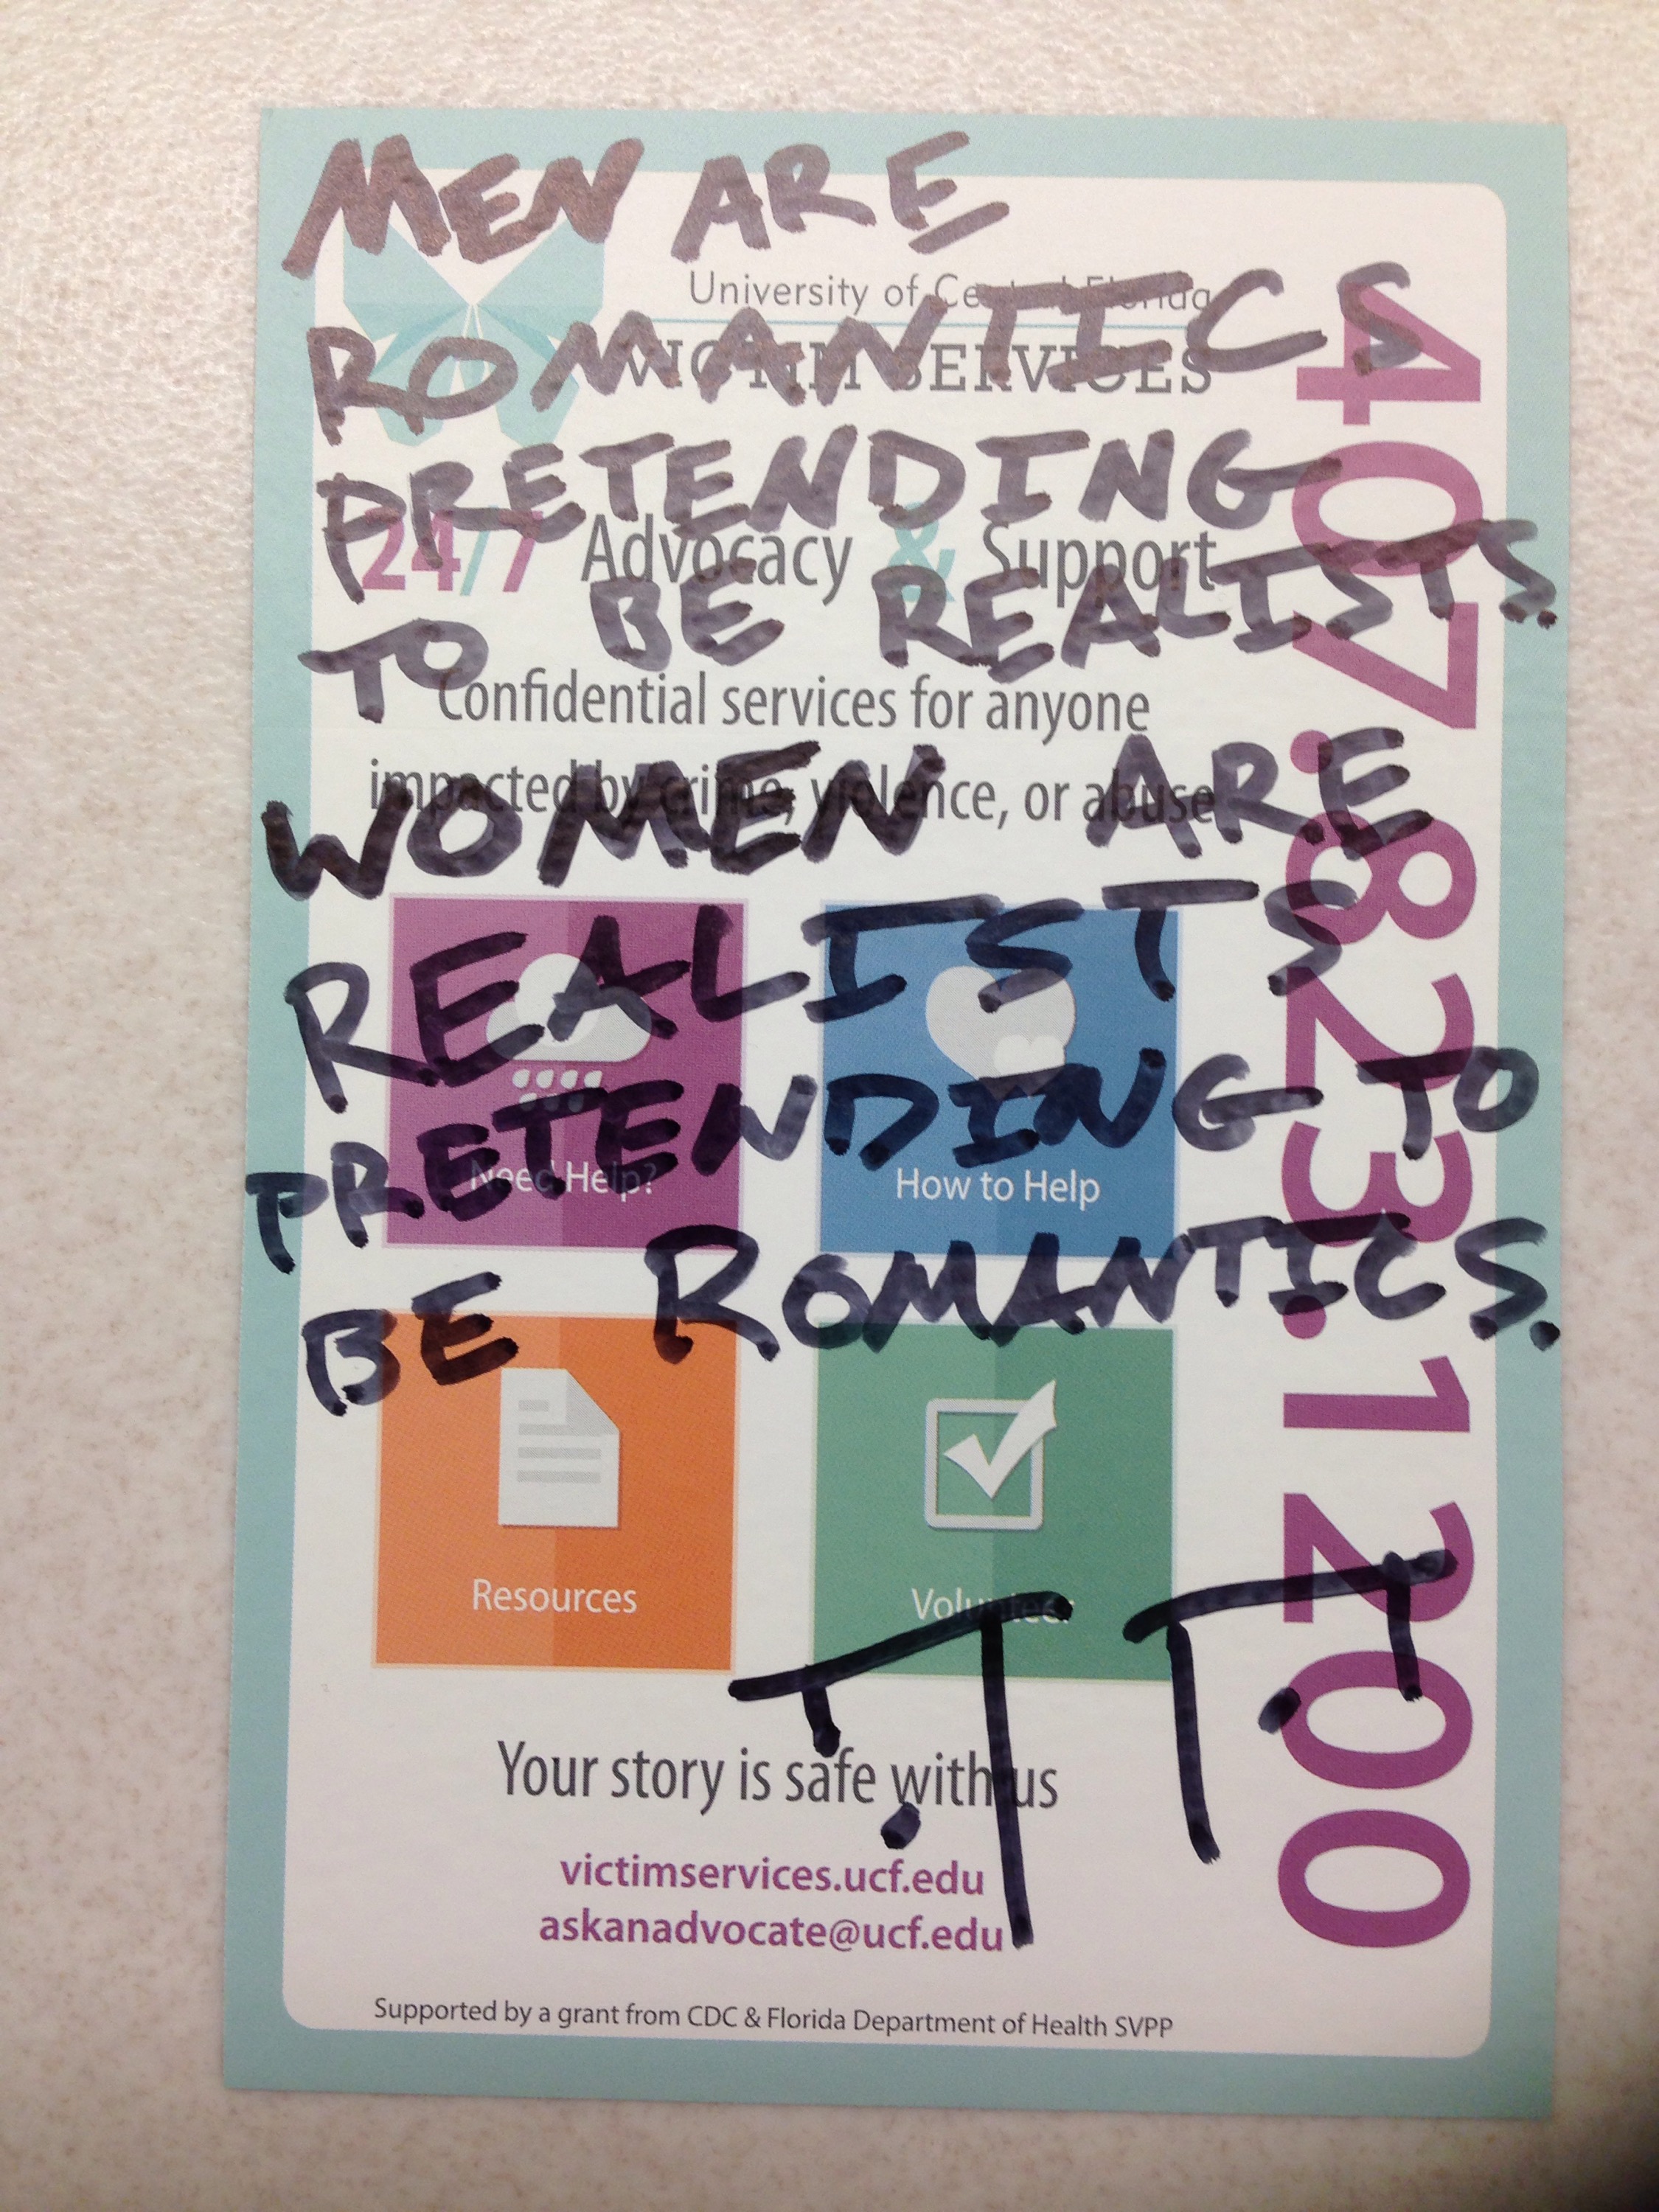 MEN ARE
University of Central Florida
ROMANTICS
VICTIM SERVICES
PRETENDING
24/7 Advocacy & Support
TO BE REALISTS.
Confidential services for anyone
impacted by crime, violence, or abuse
WOMEN ARE
REALISTS
PRETENDING TO
Need Help?
How to Help
BE ROMANTICS.
Resources
Volunteer
Your story is safe with us
victimservices.ucf.edu
askanadvocate@ucf.edu
Supported by a grant from CDC & Florida Department of Health SVPP
407.823.1200